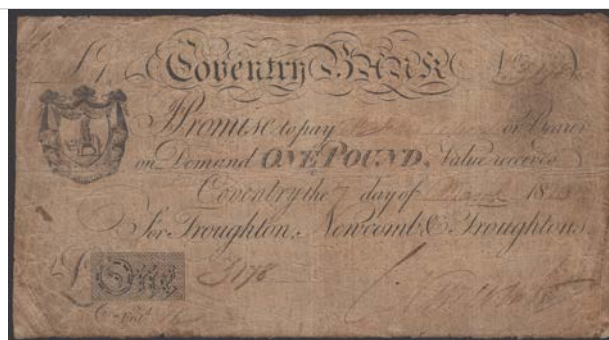 Coventry BANK
I Promise to pay or Bearer
on Demand ONE POUND, Value received
Coventry the 7 day of March 18
For Troughton, Newcomb & Troughtons.
£ One 3178